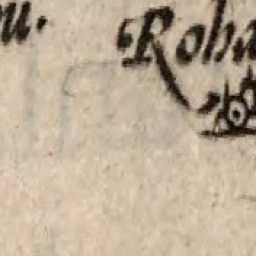 u. Roha